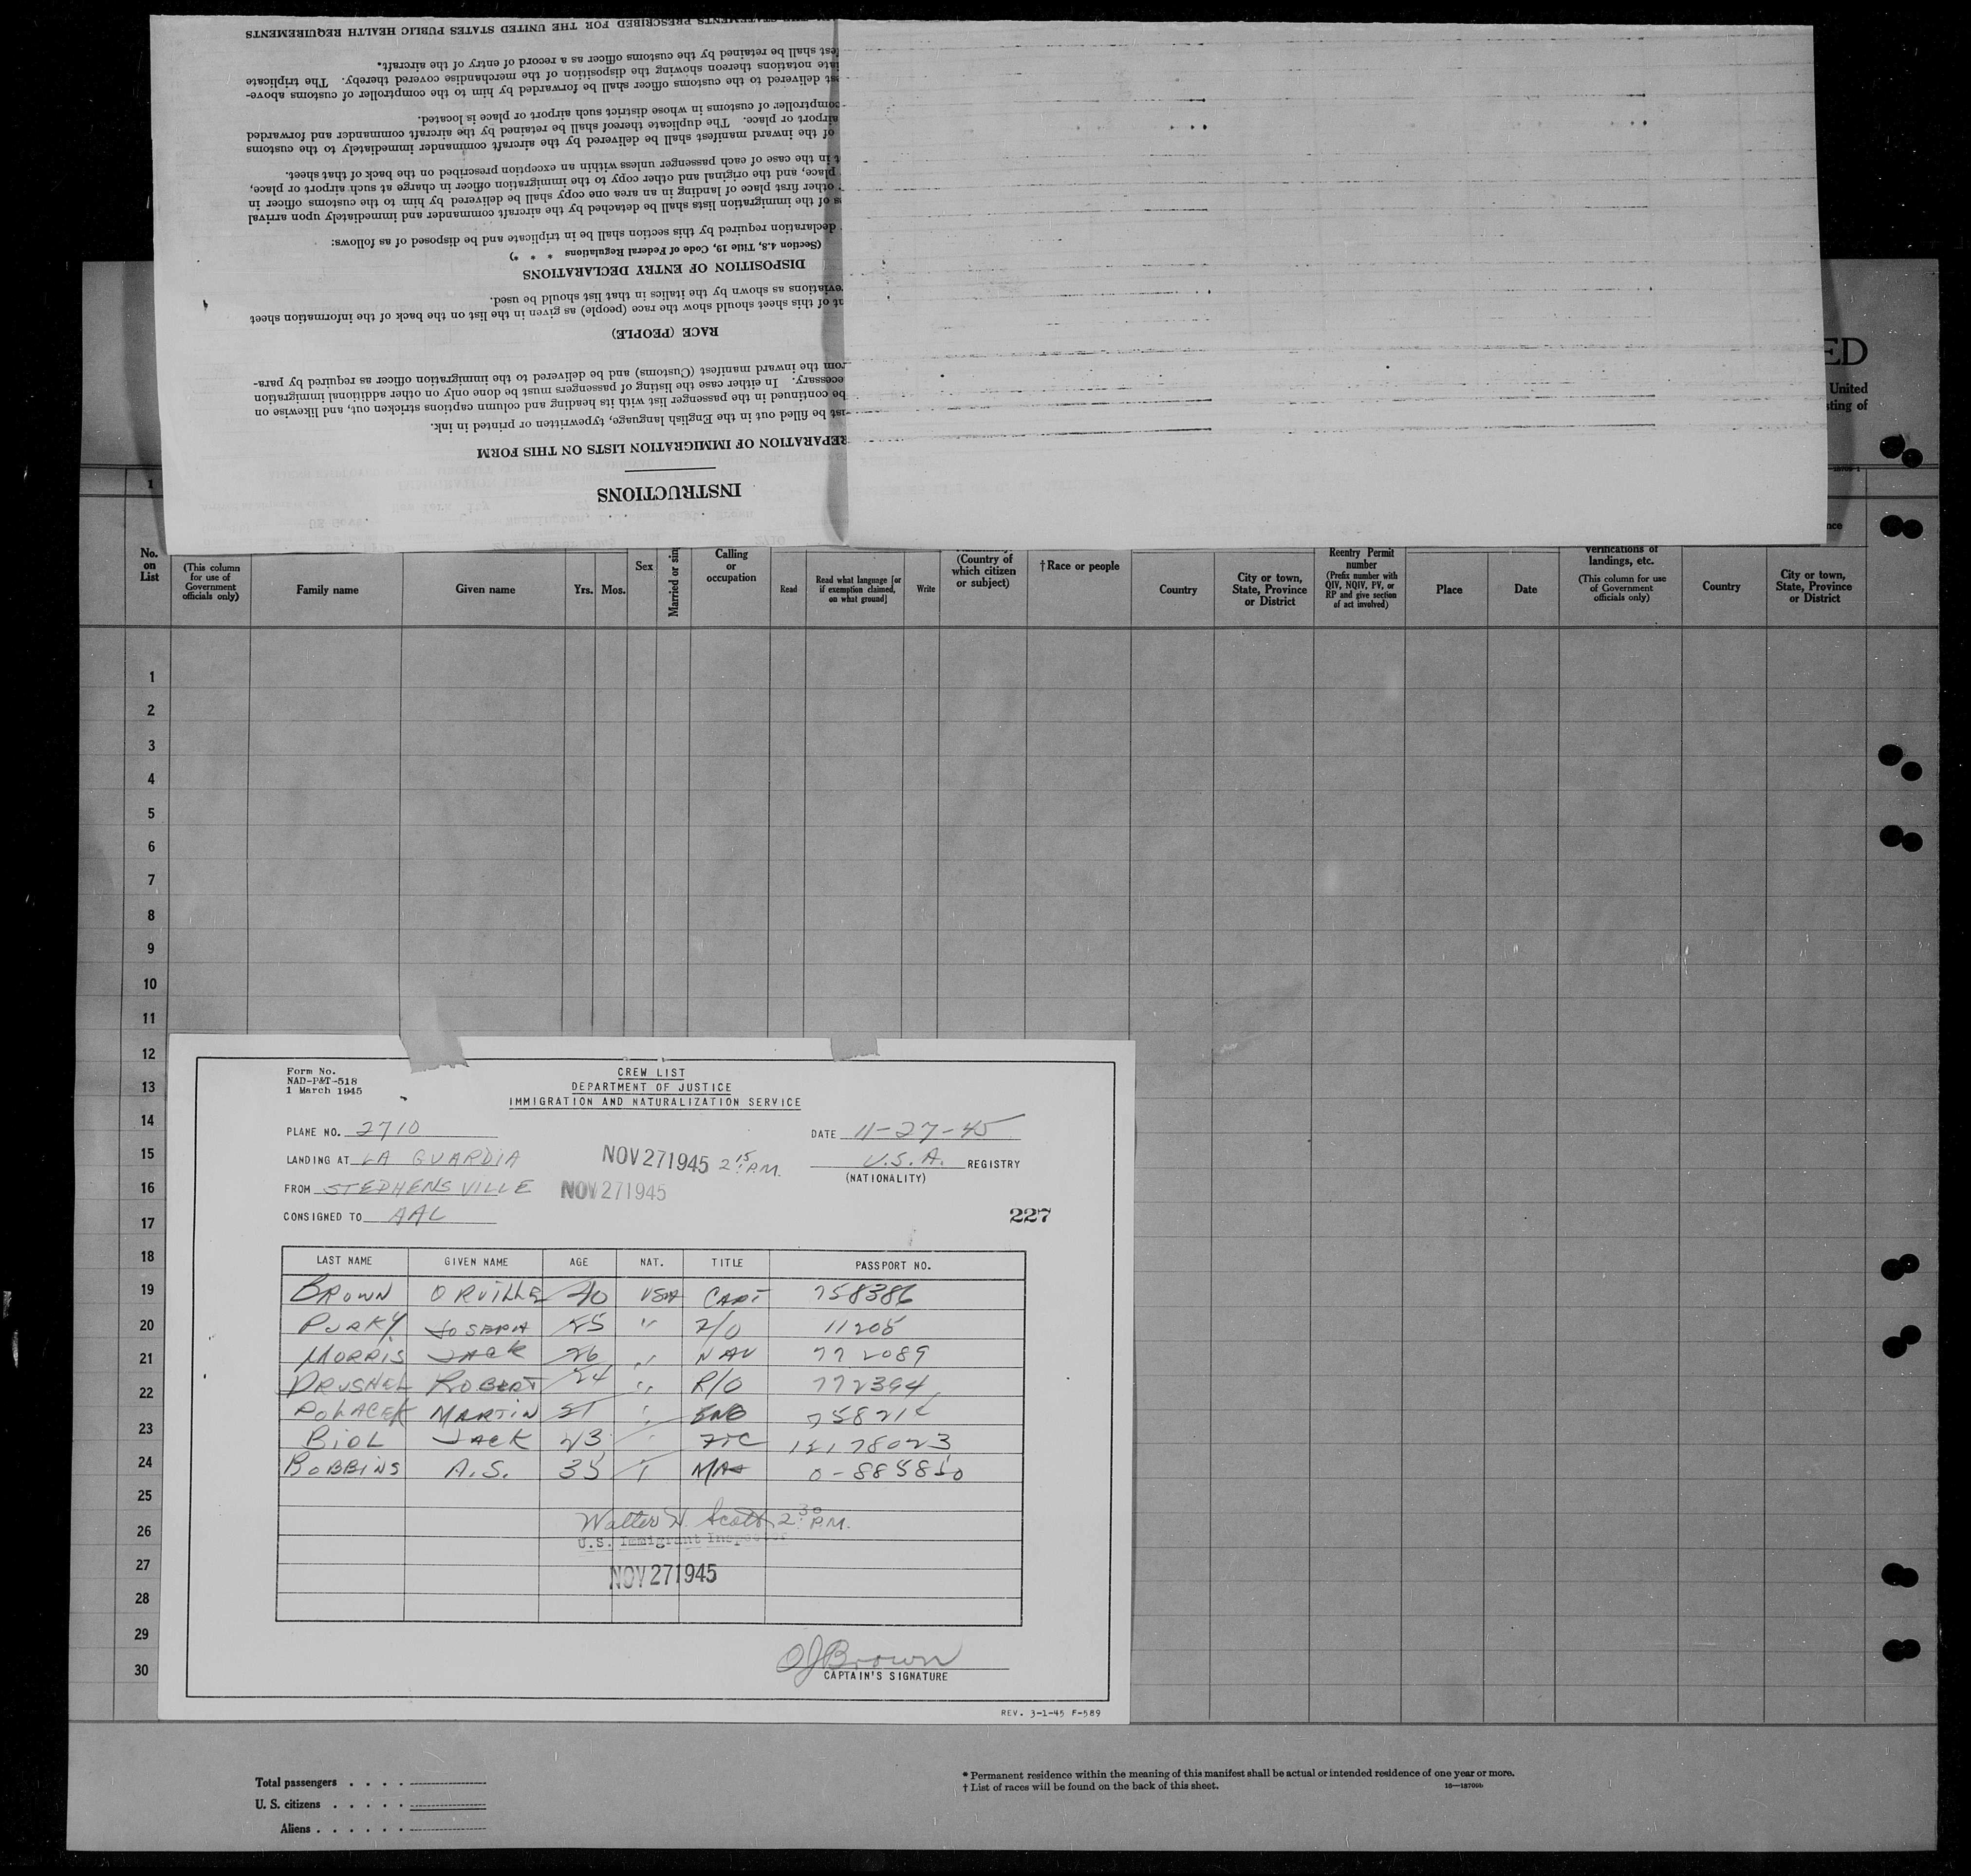 STATEMENTS PRESCRIBED FOR THE UNITED STATES PUBLIC HEALTH REQUIREMENTS
shall be retained by the customs officer as a record of entry of the aircraft.
notations thereon showing the disposition of the merchandise covered thereby. The triplicate
delivered to the customs officer shall be forwarded by him to the comptroller of customs above-
comptroller of customs in whose district such airport or place is located.
airport or place. The duplicate thereof shall be retained by the aircraft commander and forwarded
of the inward manifest shall be delivered by the aircraft commander immediately to the customs
in the case of each passenger unless within an exception prescribed on the back of that sheet.
place, and the original and other copy to the immigration officer in charge at such airport or place,
other first place of landing in an area one copy shall be delivered by him to the customs officer in
of the immigration lists shall be detached by the aircraft commander and immediately upon arrival
declaration required by this section shall be in triplicate and be disposed of as follows:
(Section 4.8, Title 19, Code of Federal Regulations * * *)
DISPOSITION OF ENTRY DECLARATIONS
eviations as shown by the italics in that list should be used.
of this sheet should show the race (people) as given in the list on the back of the information sheet
RACE (PEOPLE)
rom the inward manifest (Customs) and be delivered to the immigration officer as required by para-
ecessary. In either case the listing of passengers must be done only on other additional immigration
be continued in the passenger list with its heading and column captions stricken out, and likewise on
ust be filled out in the English language, typewritten or printed in ink.
REPARATION OF IMMIGRATION LISTS ON THIS FORM
INSTRUCTIONS
ED
United
sting of
1
No. on List
(This column for use of Government officials only)
Family name
Given name
Yrs.
Mos.
Sex
Married or sin
Calling or occupation
Read
Read what language [or if exemption claimed, on what ground]
Write
(Country of which citizen or subject)
†Race or people
Country
City or town, State, Province or District
Reentry Permit number
(Prefix number with QIV, NQIV, PV, or RP and give section of act involved)
Place
Date
verifications of landings, etc.
(This column for use of Government officials only)
Country
City or town, State, Province or District
1
2
3
4
5
6
7
8
9
10
11
12
13
14
15
16
17
18
19
20
21
22
23
24
25
26
27
28
29
30
Form No.
NAD-P&T-518
1 March 1945
CREW LIST
DEPARTMENT OF JUSTICE
IMMIGRATION AND NATURALIZATION SERVICE
PLANE NO. 2710
DATE 11-27-45
LANDING AT LA GUARDIA
NOV 27 1945 2:15 P.M.
U.S.A. REGISTRY
(NATIONALITY)
FROM STEPHENSVILLE
NOV 27 1945
CONSIGNED TO AAL
227
LAST NAME GIVEN NAME AGE NAT. TITLE PASSPORT NO.
BROWN ORVILLE 40 USA CAPT 758386
PURKY JOSEPH 25 " F/O 11205
MORRIS JACK 26 " NAV 772089
DRUSHEL ROBERT 24 " R/O 772394
POLACEK MARTIN ENG
BIOL JACK 23 12178023
BOBBINS A.S. 35
Walter H. Scott 2:30 P.M.
U.S. Immigrant Inspector
NOV 27 1945
OJ Brown
CAPTAIN'S SIGNATURE
REV. 3-1-45 F-589
Total passengers . . . .
U. S. citizens . . . . .
Aliens . . . . . .
* Permanent residence within the meaning of this manifest shall be actual or intended residence of one year or more.
† List of races will be found on the back of this sheet.